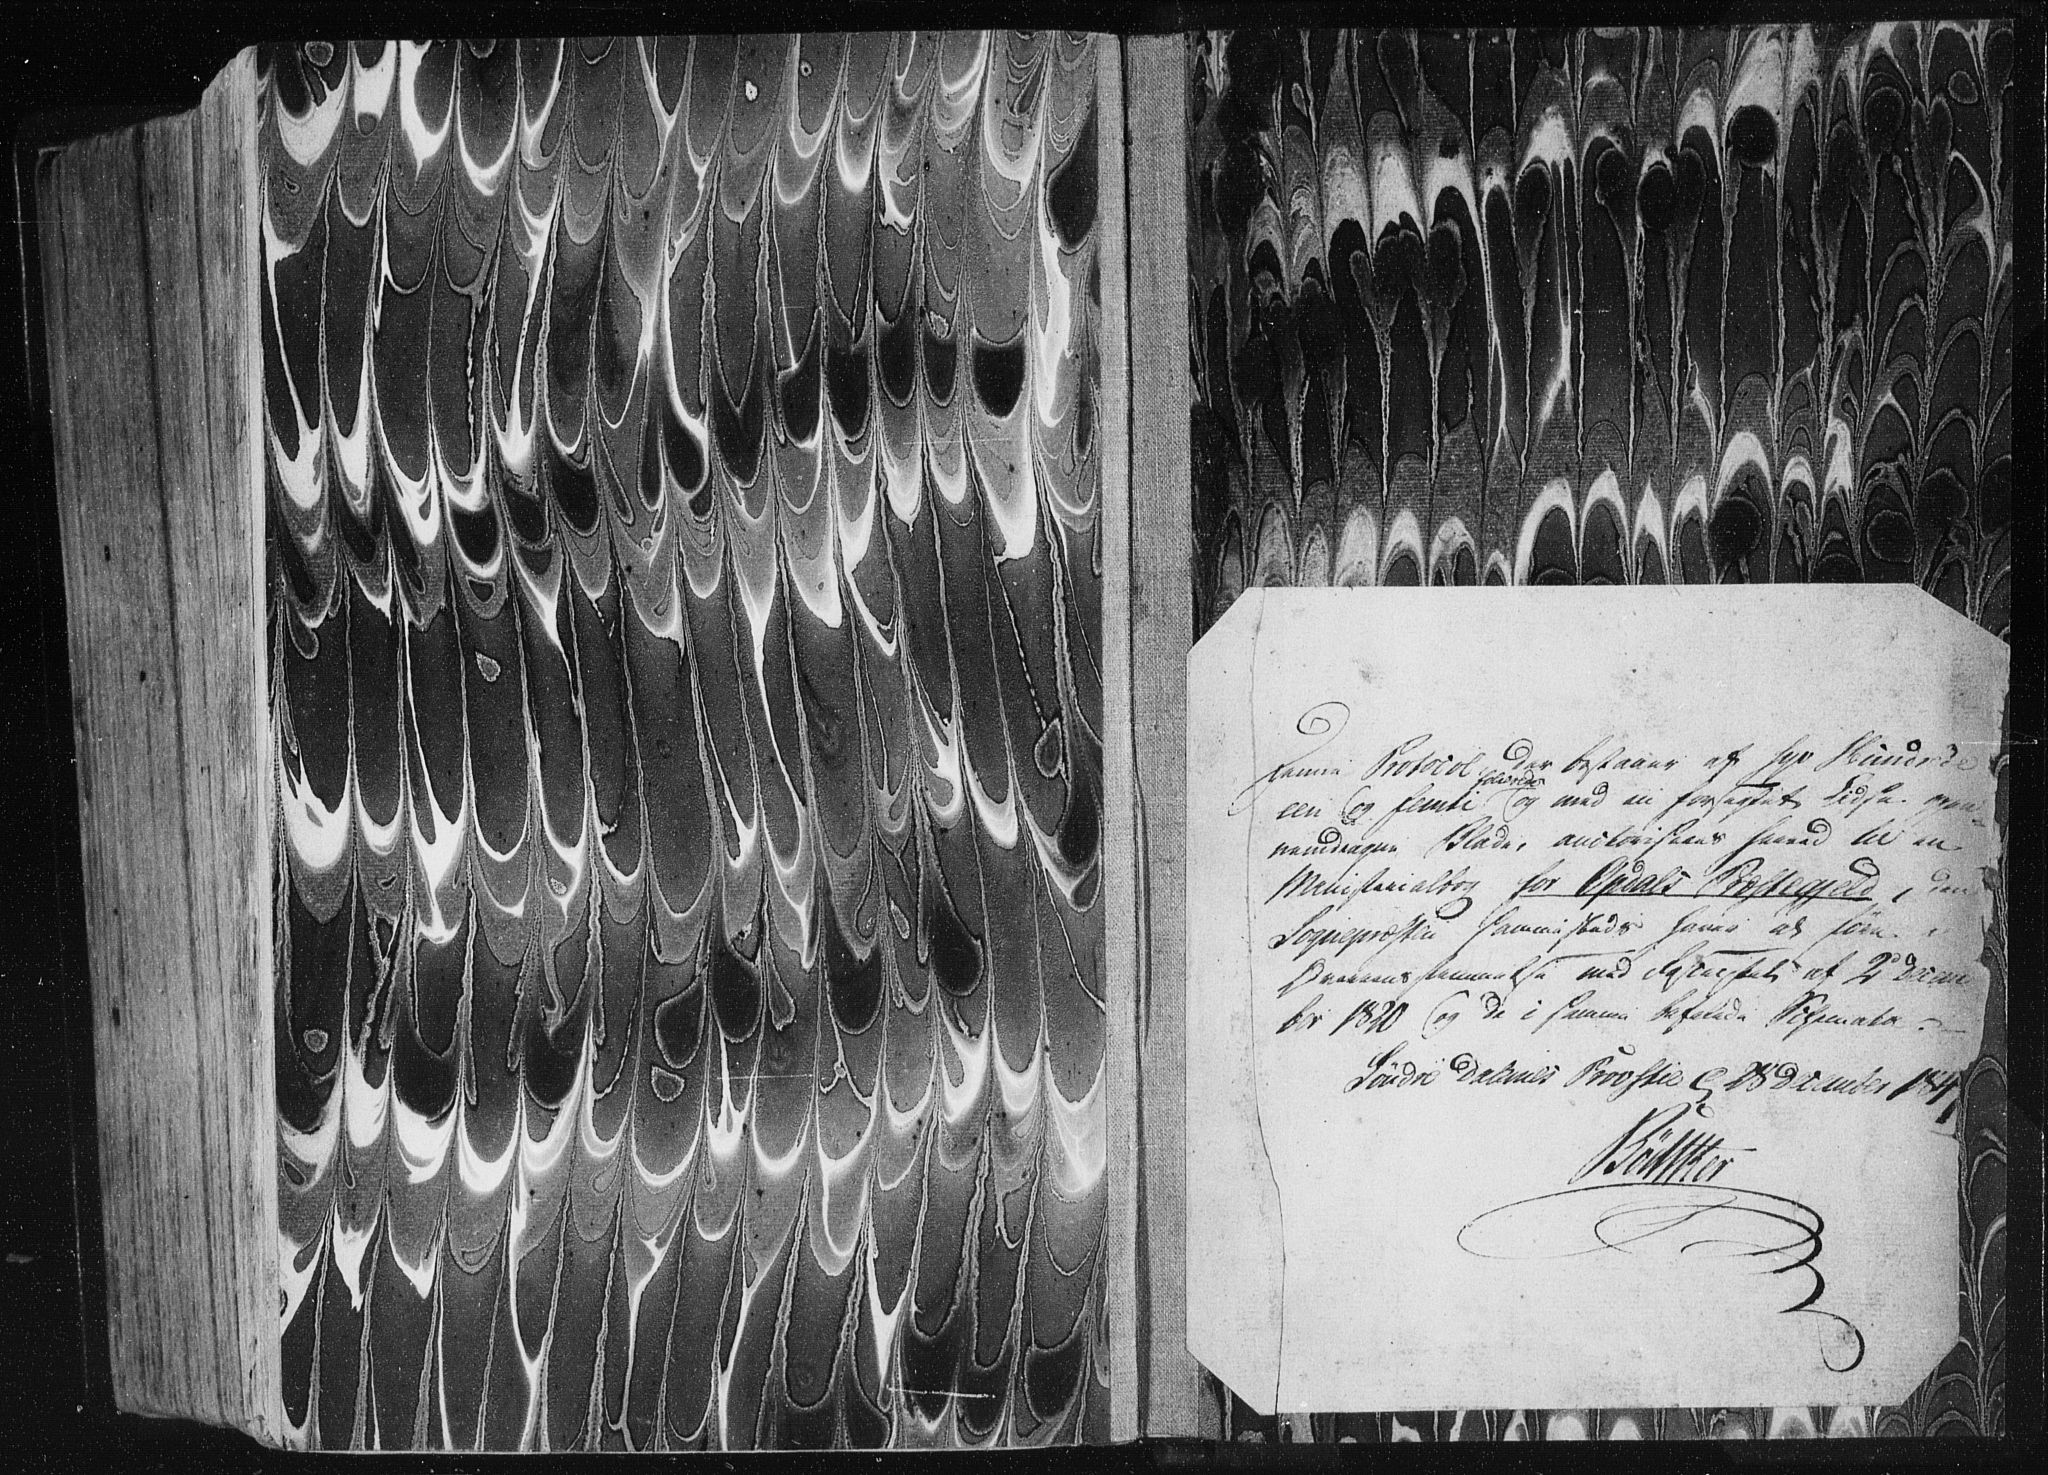 Denne Protocol, der bestaaer af syv Hundrede
een og femti folierede og med en forseglet Lidse gjen-
nemdragne Blade, auctoriseres herved til en
Ministerialbog for Opdals Præstegjeld, den
Sognepræsten sammesteds haver at føre i
Overensstemmelse med Rescriptet af 2den Decem
ber 1820 og de i samme befalede Schemata.
Søndre Dalernes Provstie 28 December 184